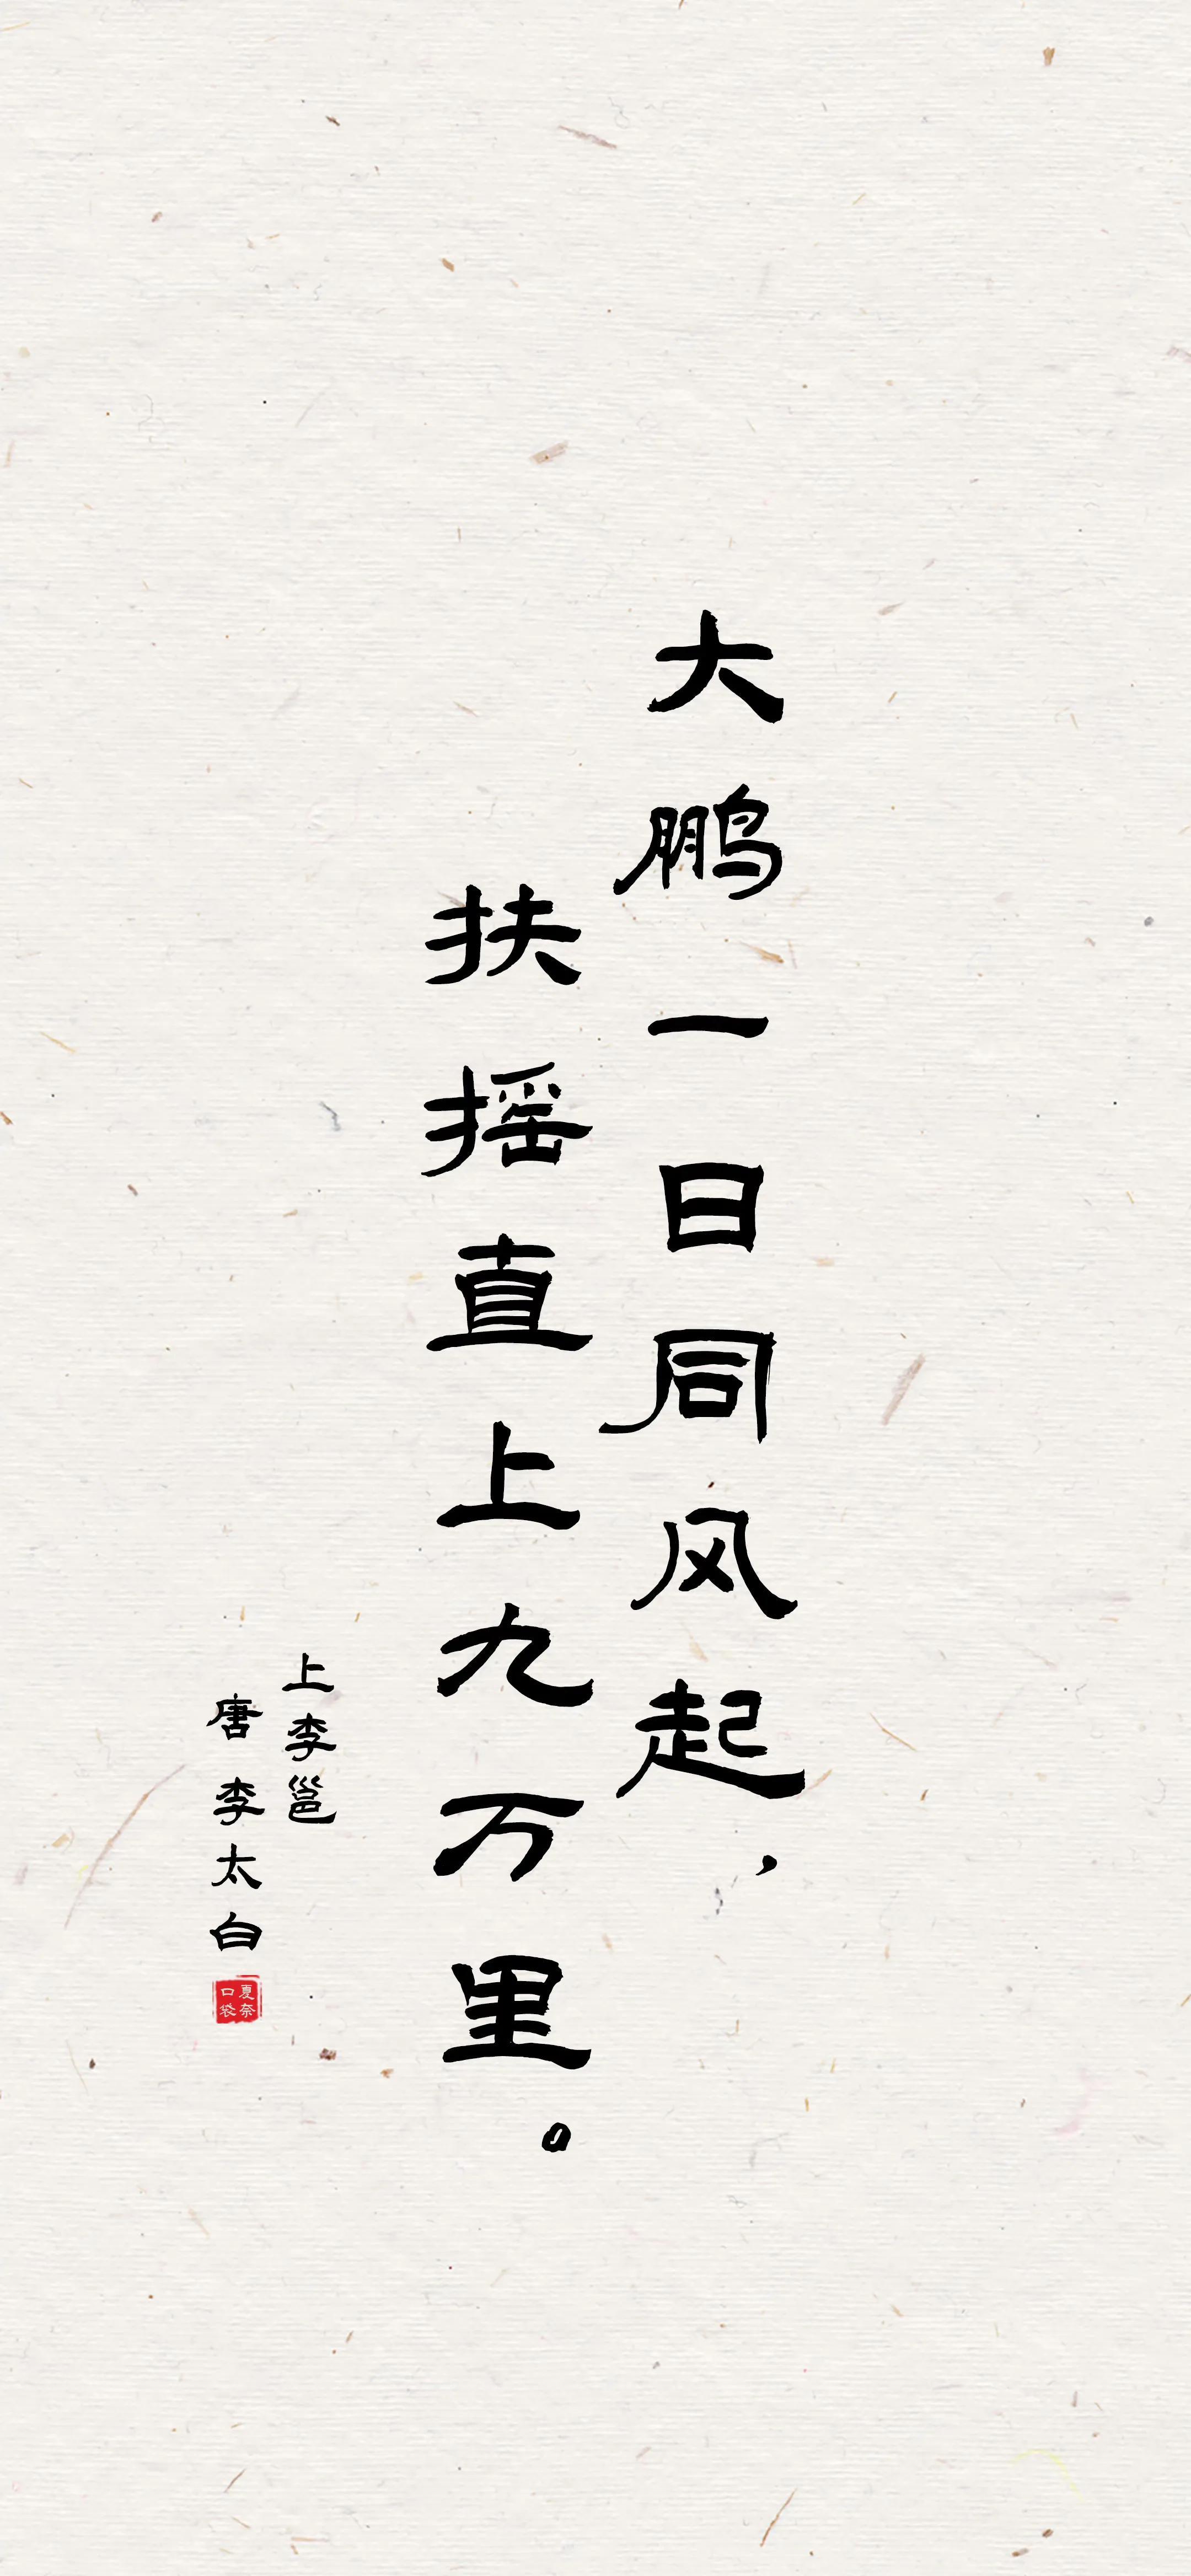 大鹏一日同风起，
扶摇直上九万里。
上李邕
唐 李太白
夏奈
口袋